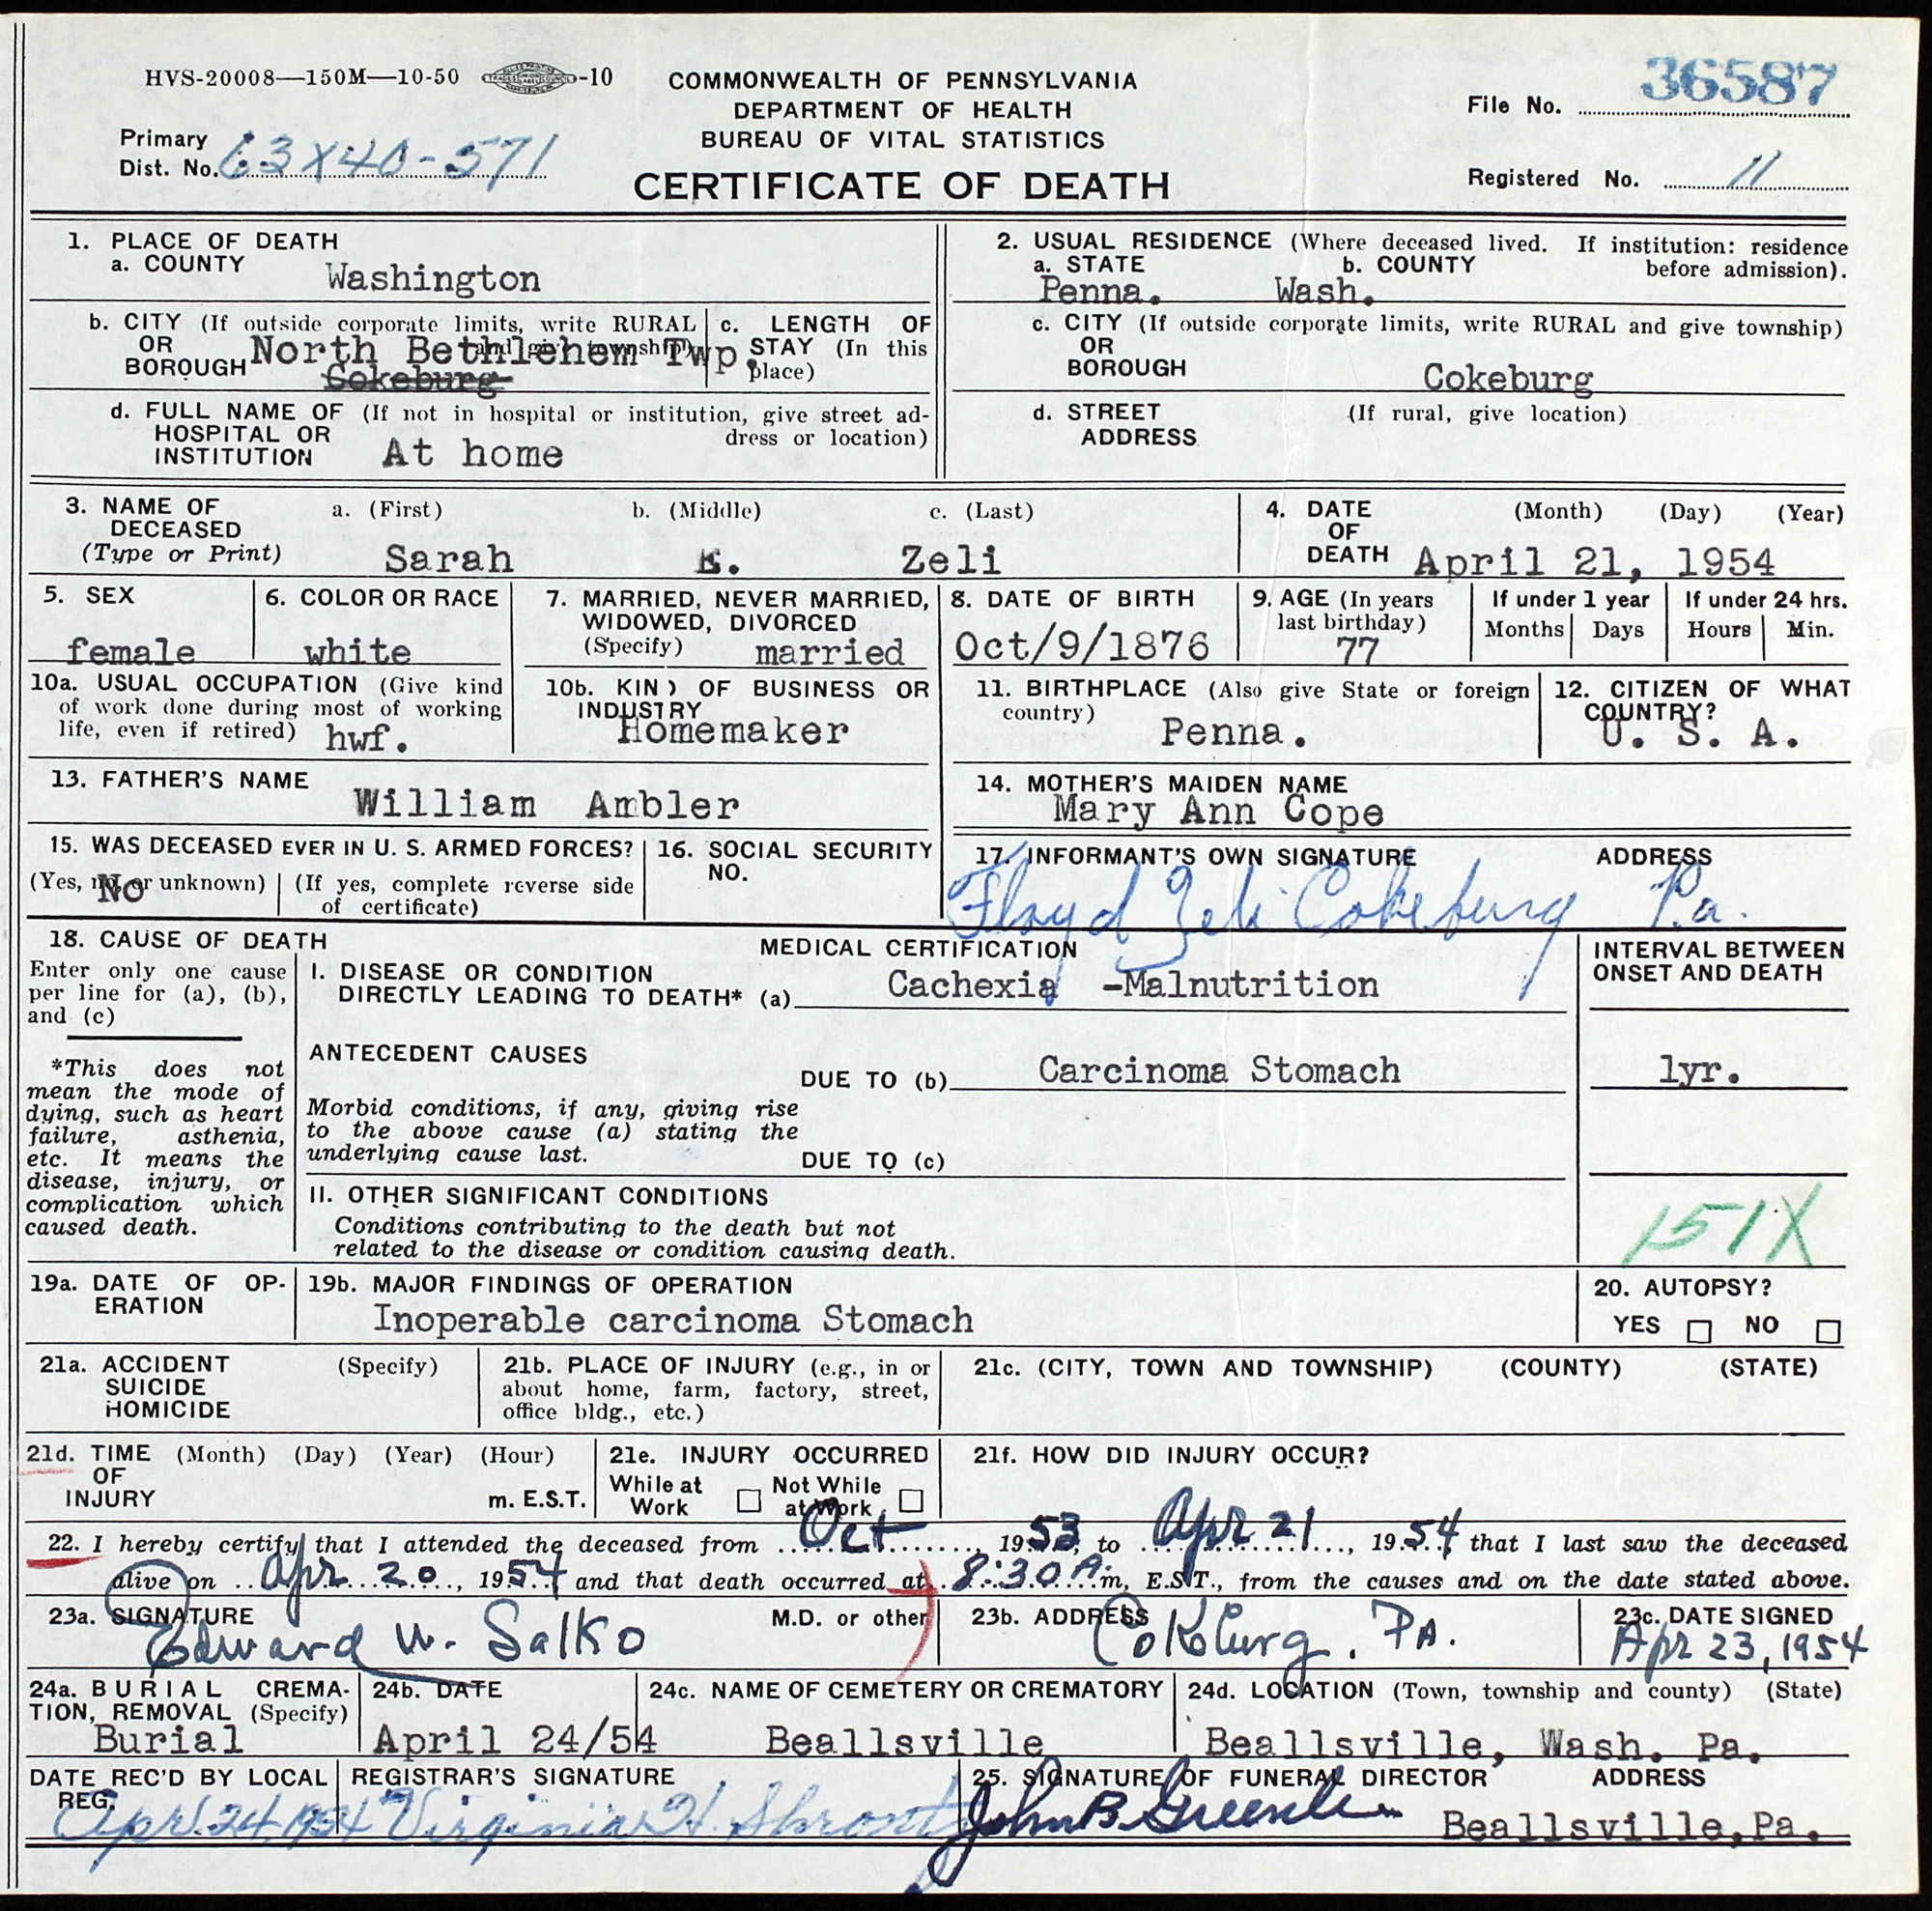 HVS-20008—150M—10-50 -10
COMMONWEALTH OF PENNSYLVANIA
DEPARTMENT OF HEALTH
BUREAU OF VITAL STATISTICS
CERTIFICATE OF DEATH
File No. 36587
Primary
Dist. No. 63X40-571
Registered No. 11
1. PLACE OF DEATH
a. COUNTY
Washington
2. USUAL RESIDENCE (Where deceased lived. If institution: residence
before admission).
a. STATE b. COUNTY
Penna. Wash.
b. CITY (If outside corporate limits, write RURAL
and give township)
OR
BOROUGH
North Bethlehem Twp.
Cokeburg
c. LENGTH OF
STAY (In this
place)
c. CITY (If outside corporate limits, write RURAL and give township)
OR
BOROUGH
Cokeburg
d. FULL NAME OF (If not in hospital or institution, give street ad-
HOSPITAL OR dress or location)
INSTITUTION At home
d. STREET (If rural, give location)
ADDRESS
3. NAME OF a. (First) b. (Middle) c. (Last)
DECEASED
(Type or Print) Sarah E. Zeli
4. DATE (Month) (Day) (Year)
OF
DEATH April 21, 1954
5. SEX
female
6. COLOR OR RACE
white
7. MARRIED, NEVER MARRIED,
WIDOWED, DIVORCED
(Specify) married
8. DATE OF BIRTH
Oct/9/1876
9. AGE (In years
last birthday)
77
If under 1 year
Months Days
If under 24 hrs.
Hours Min.
10a. USUAL OCCUPATION (Give kind
of work done during most of working
life, even if retired) hwf.
10b. KIND OF BUSINESS OR
INDUSTRY
Homemaker
11. BIRTHPLACE (Also give State or foreign
country)
Penna.
12. CITIZEN OF WHAT
COUNTRY?
U. S. A.
13. FATHER'S NAME
William Ambler
14. MOTHER'S MAIDEN NAME
Mary Ann Cope
15. WAS DECEASED EVER IN U. S. ARMED FORCES?
(Yes, no, or unknown) (If yes, complete reverse side
of certificate)
No
16. SOCIAL SECURITY
NO.
17. INFORMANT'S OWN SIGNATURE ADDRESS
Floyd Zeli Cokeburg Pa.
18. CAUSE OF DEATH
Enter only one cause
per line for (a), (b),
and (c)
*This does not
mean the mode of
dying, such as heart
failure, asthenia,
etc. It means the
disease, injury, or
complication which
caused death.
MEDICAL CERTIFICATION
I. DISEASE OR CONDITION
DIRECTLY LEADING TO DEATH* (a) Cachexia -Malnutrition
ANTECEDENT CAUSES
DUE TO (b) Carcinoma Stomach
Morbid conditions, if any, giving rise
to the above cause (a) stating the
underlying cause last.
DUE TO (c)
II. OTHER SIGNIFICANT CONDITIONS
Conditions contributing to the death but not
related to the disease or condition causing death.
INTERVAL BETWEEN
ONSET AND DEATH
1yr.
151X
19a. DATE OF OP-
ERATION
19b. MAJOR FINDINGS OF OPERATION
Inoperable carcinoma Stomach
20. AUTOPSY?
YES NO
21a. ACCIDENT (Specify)
SUICIDE
HOMICIDE
21b. PLACE OF INJURY (e.g., in or
about home, farm, factory, street,
office bldg., etc.)
21c. (CITY, TOWN AND TOWNSHIP) (COUNTY) (STATE)
21d. TIME (Month) (Day) (Year) (Hour)
OF
INJURY m. E.S.T.
21e. INJURY OCCURRED
While at Not While
Work at Work
21f. HOW DID INJURY OCCUR?
22. I hereby certify that I attended the deceased from Oct, 1953, to Apr 21, 1954, that I last saw the deceased
alive on Apr 20, 1954 and that death occurred at 8:30 A. m, E.S.T., from the causes and on the date stated above.
23a. SIGNATURE M.D. or other
Edward W. Salko
23b. ADDRESS
Cokeburg. PA.
23c. DATE SIGNED
Apr 23, 1954
24a. BURIAL CREMA-
TION, REMOVAL (Specify)
Burial
24b. DATE
April 24/54
24c. NAME OF CEMETERY OR CREMATORY
Beallsville
24d. LOCATION (Town, township and county) (State)
Beallsville, Wash. Pa.
DATE REC'D BY LOCAL
REG.
Apr. 24, 1954
REGISTRAR'S SIGNATURE
Virginia H. Shrontz
25. SIGNATURE OF FUNERAL DIRECTOR ADDRESS
John B Greenlee
Beallsville, Pa.